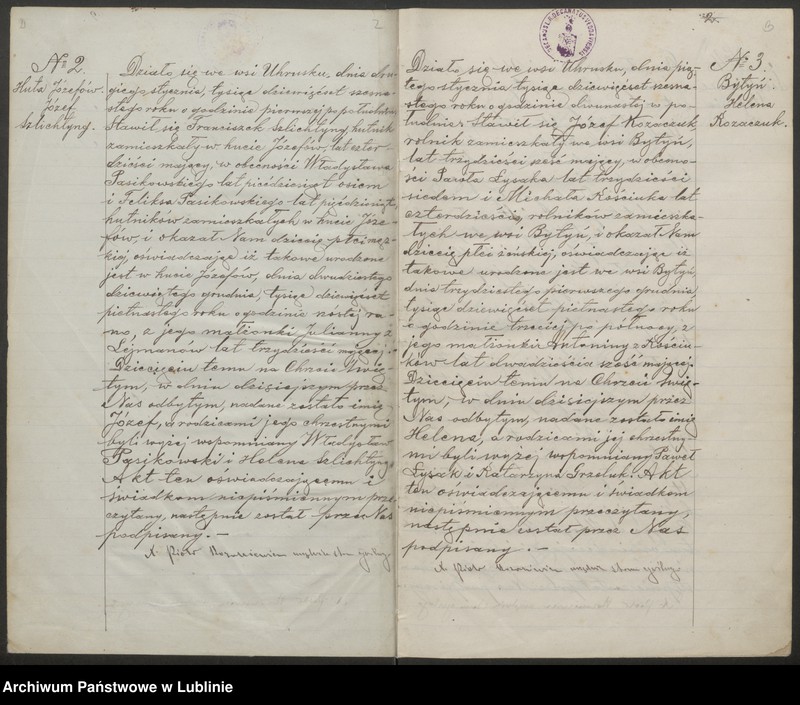 2
№ 2.
Huta Józefów.
Józef
Szlichtyng.
Działo się we wsi Uhrusku, dnia dru-
giego stycznia, tysiąc dziewięćset szesna-
stego roku o godzinie pierwszej po południu
Stawił się Franciszek Szlichtyng, hutnik
zamieszkały w hucie Józefów, lat czter-
dzieści mający, w obecności Władysława
Pasikowskiego lat pięćdziesiąt osiem
i Feliksa Pasikowskiego lat pięćdziesiąt
hutników zamieszkałych w hucie Józe-
fów, i okazał Nam dziecię płci męz-
kiej, oświadczając iż takowe urodzone
jest w hucie Józefów, dnia dwudziestego
dziewiątego grudnia, tysiąc dziewięćset
piętnastego roku o godzinie szóstej ra-
no, z jego małżonki Julianny z
Lejmanów lat trzydzieści mającej.
Dziecięciu temu na Chrzcie Świę-
tym, w dniu dzisiejszym przez
Nas odbytym, nadane zostało imię
Józef, a rodzicami jego chrzestnymi
byli wyżej wspomniany Władysław
Pasikowski i Helena Szlichtyng.
Akt ten oświadczającemu i
świadkom niepiśmiennym prze-
czytany, następnie został przez Nas
podpisany. —
X. Piotr
№ 3.
Bytyń
Helena
Kozaczuk.
Działo się we wsi Uhrusku, dnia pią-
tego stycznia tysiąc dziewięćset szesna-
stego roku o godzinie dwunastej w po-
łudnie. Stawił się Józef Kozaczuk
rolnik zamieszkały we wsi Bytyń,
lat trzydzieści sześć mający, w obecno-
ści Pawła Łysaka lat trzydzieści
siedem i Michała Kościuka lat
czterdzieści, rolników zamieszka-
łych we wsi Bytyń, i okazał Nam
dziecię płci żeńskiej, oświadczając iż
takowe urodzone jest we wsi Bytyń,
dnia trzydziestego pierwszego grudnia
tysiąc dziewięćset piętnastego roku
o godzinie trzeciej po północy, z
jego małżonki Antoniny z Kościu-
ków lat dwadzieścia sześć mającej.
Dziecięciu temu na Chrzcie Świę-
tym, w dniu dzisiejszym przez
Nas odbytym, nadane zostało imię
Helena, a rodzicami jej chrzestny-
mi byli wyżej wspomniany Paweł
Łysak i Katarzyna Grzeluk. Akt
ten oświadczającemu i świadkom
niepiśmiennym przeczytany,
następnie został przez Nas
podpisany. —
X. Piotr
Archiwum Państwowe w Lublinie